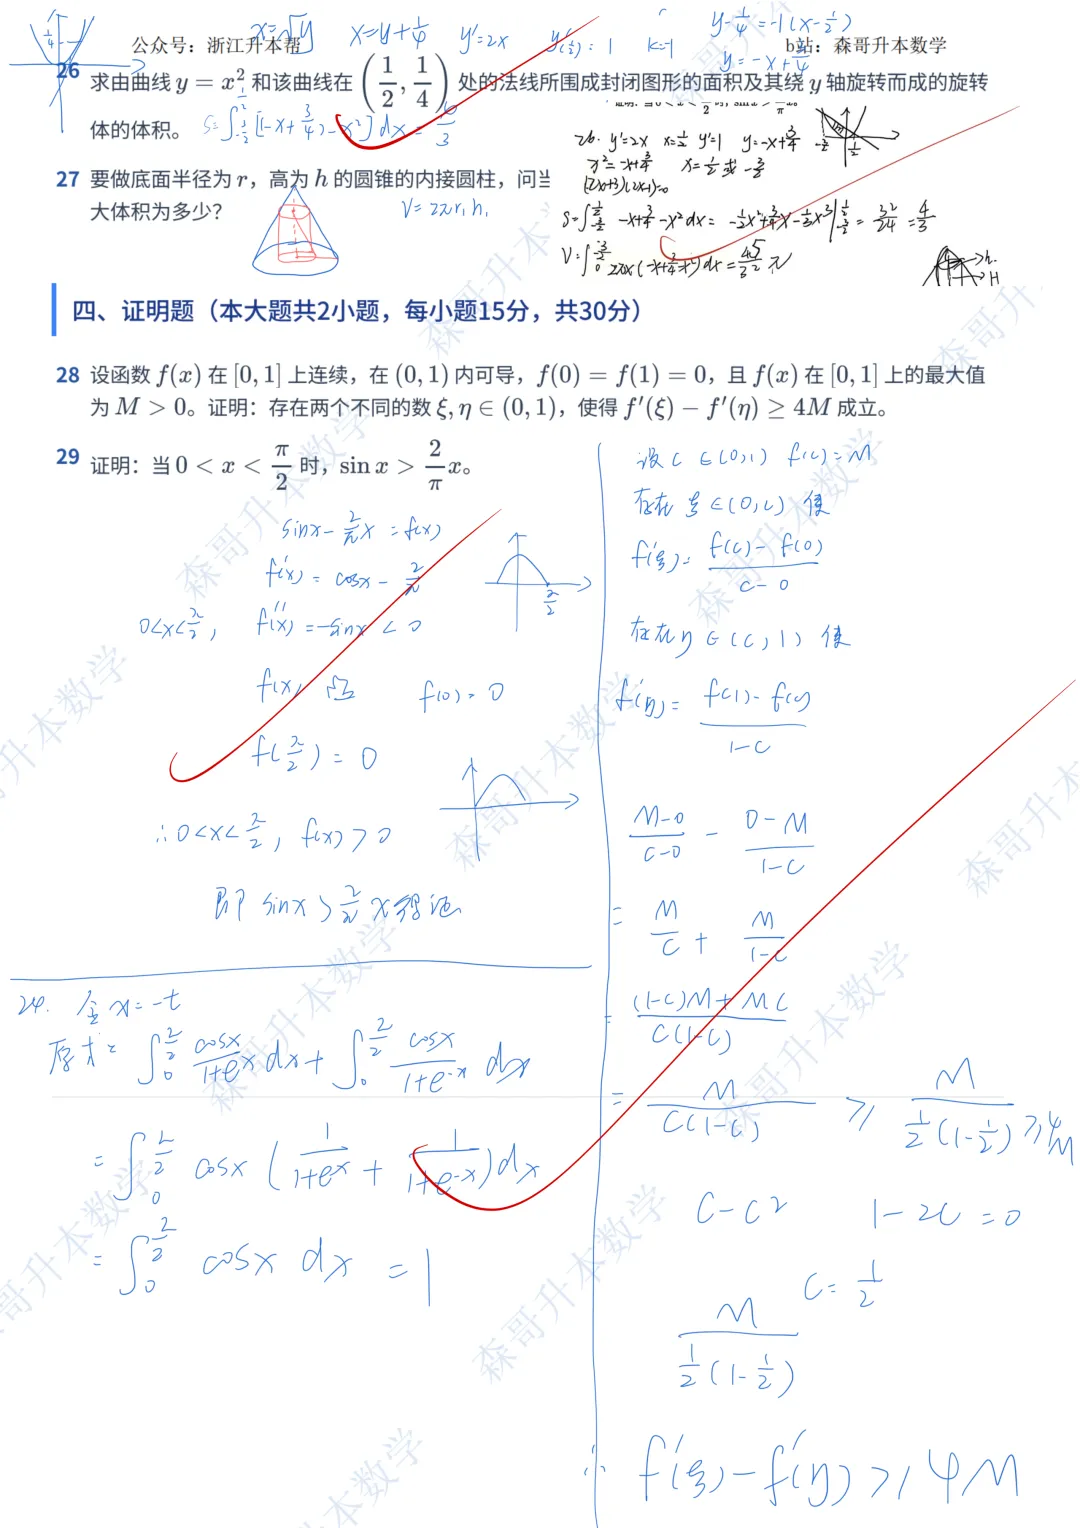 x=√y x=y+1/4 y'=2x y'(1/2)=1 k=-1 y-1/4=-1(x-1/2)
y=-x+3/4
公众号：浙江升本帮
b站：森哥升本数学
26 求由曲线 y = x² 和该曲线在 (1/2, 1/4) 处的法线所围成封闭图形的面积及其绕 y 轴旋转而成的旋转
体的体积。
26. y'=2x x=1/2 y'=1 y=-x+3/4
x²=-x+3/4 x=1/2 或 -3/2
(2x+3)(2x-1)=0
27 要做底面半径为 r，高为 h 的圆锥的内接圆柱，问当
大体积为多少？
V=2πr₁h₁
四、证明题（本大题共2小题，每小题15分，共30分）
28 设函数 f(x) 在 [0,1] 上连续，在 (0,1) 内可导，f(0) = f(1) = 0，且 f(x) 在 [0,1] 上的最大值
为 M > 0。证明：存在两个不同的数 ξ, η ∈ (0,1)，使得 f'(ξ) − f'(η) ≥ 4M 成立。
29 证明：当 0 < x < π/2 时，sin x > 2/π x。
sinx-2/π x=f(x)
f'(x)=cosx-2/π
0<x<π/2, f''(x)=-sinx<0
f(x) 凸 f(0)=0
f(π/2)=0
∴0<x<π/2, f(x)>0
即 sinx>2/π x 得证
设 c∈(0,1) f(c)=M
存在 ξ∈(0,c) 使
f'(ξ)=(f(c)-f(0))/(c-0)
存在 η∈(c,1) 使
f'(η)=(f(1)-f(c))/(1-c)
(M-0)/(c-0) - (0-M)/(1-c)
= M/c + M/(1-c)
= ((1-c)M+Mc)/(c(1-c))
= M/(c(1-c)) ≥ M/(1/2(1-1/2)) ≥4M
c-c² 1-2c=0
c=1/2
M/(1/2(1-1/2))
∴ f'(ξ)-f'(η)≥4M
24. 令 x=-t
原式=∫₀^(π/2) cosx/(1+e^x) dx+∫₀^(π/2) cosx/(1+e^-x) dx
=∫₀^(π/2) cosx (1/(1+e^x) + 1/(1+e^-x))dx
=∫₀^(π/2) cosx dx =1
森哥升本数学